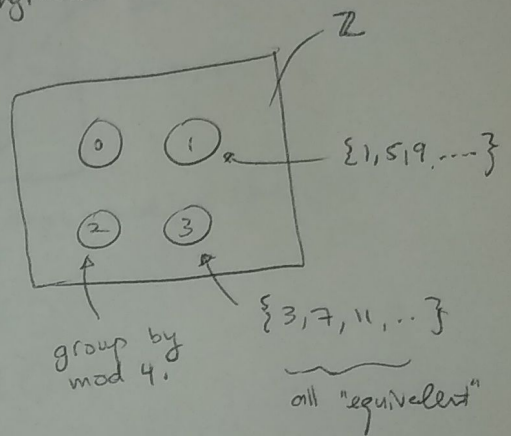 ℤ
0 1
{1,5,9,.....}
2 3
{3,7,11,..}
group by
mod 4.
all "equivalent"